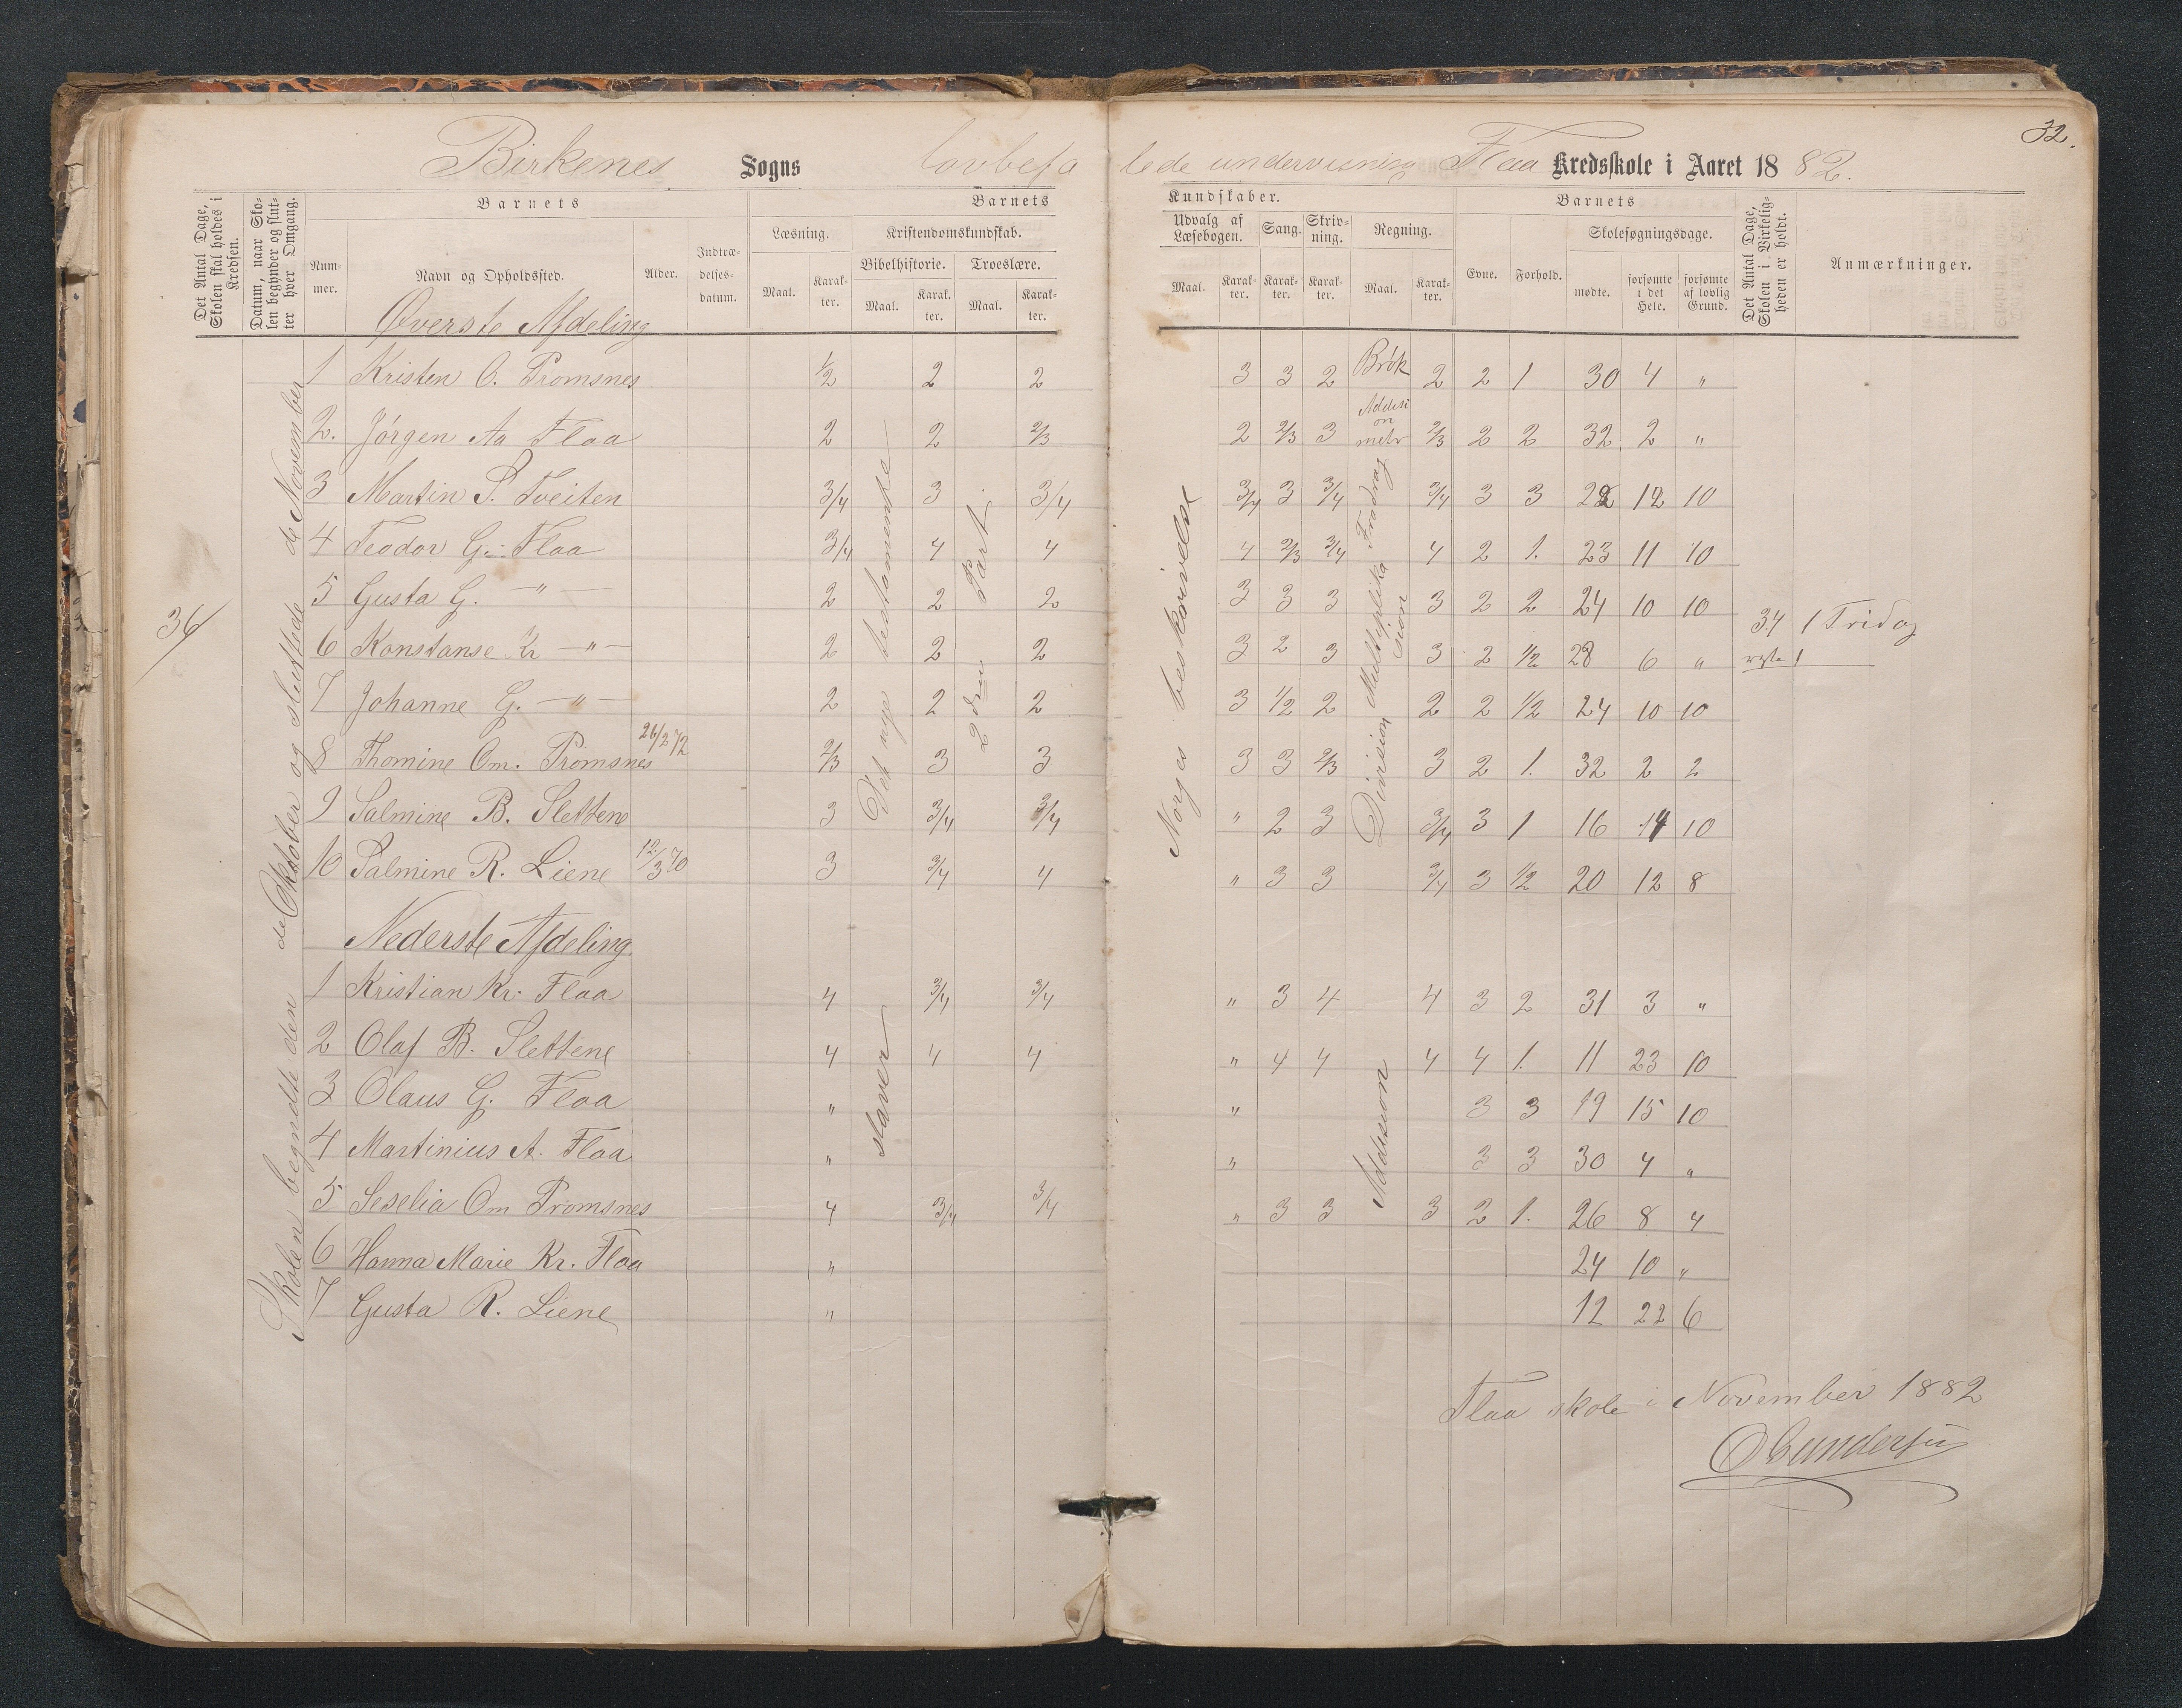 32.
Birkenes Sogns lovbefalede undervisning Flaa Kredsskole i Aaret 1882.
Det Antal Dage, Skolen skal holdes i Kredsen.
Datum, naar Skolen begynder og slutter hver Omgang.
Barnets
Nummer.
Navn og Opholdssted.
Alder.
Indtrædelsesdatum.
Barnets Kundskaber.
Læsning.
Maal. Karakter.
Kristendomskundskab.
Bibelhistorie. Troeslære.
Maal. Karakter. Maal. Karakter.
Udvalg af Læsebogen.
Maal. Karakter.
Sang. Karakter.
Skrivning. Karakter.
Regning.
Maal. Karakter.
Barnets
Evne. Forhold.
Skolesøgningsdage.
mødte. forsømte i det Hele. forsømte af lovlig Grund.
Det Antal Dage, Skolen i Virkeligheden er holdt.
Anmærkninger.
Øverste Afdeling
1 Kristen O. Tromsnes 1/2 2 2 3 3 2 Brøk 2 2 1 30 4 "
2. Jörgen Aa Flaa 2 2 2/3 2 2/3 3 2/3 2 2 32 2 "
3 Martin S. Tveiten 3/4 3 3/4 3/4 3 3/4 3/4 3 3 22 12 10
4 Teodor G. Flaa 3/4 4 4 4 2/3 3/4 4 2 1. 23 11 10
5 Gusta G. — " — 2 2 2 3 3 3 3 2 2 24 10 10
6 Konstanse Kr — " — 2 2 2 3 2 3 3 2 1/2 28 6 "
7 Johanne G. — " — 2 2 2 3 1/2 2 2 2 1/2 24 10 10
8 Thomine Om. Tromsnes 26/2 72 2/3 3 3 3 3 2/3 3 2 1. 32 2 2
9 Salmine B. Slettene 3 3/4 3/4 " 2 3 3/4 3 1 16 14 10
10 Salmine R. Liene 12/3 70 3 3/4 4 " 3 3 3/4 3 1/2 20 12 8
Nederste Afdeling
1 Kristian Kr. Flaa 4 3/4 3/4 " 3 4 4 3 2 31 3 "
2 Olaf B. Slettene 4 4 4 " 4 4 4 4 1. 11 23 10
3 Olaus G. Flaa " " 3 3 19 15 10
4 Martinius A. Flaa " " 3 3 30 4 "
5 Seselia Om Tromsnes 4 3/4 3/4 " 3 3 3 2 1. 26 8 4
6 Hanna Marie Kr. Flaa " 24 10 "
7 Gusta R. Liene " 12 22 6
34
Skolen begyndte den de Oktober og sluttede de November
Det nye testamente
2den Part
staver
Norges beskrivelse
Addition
Fradrag
Multiplikasion
Division
Addision
34 1 Fridag
1
Flaa skole i November 1882
O Gundersen